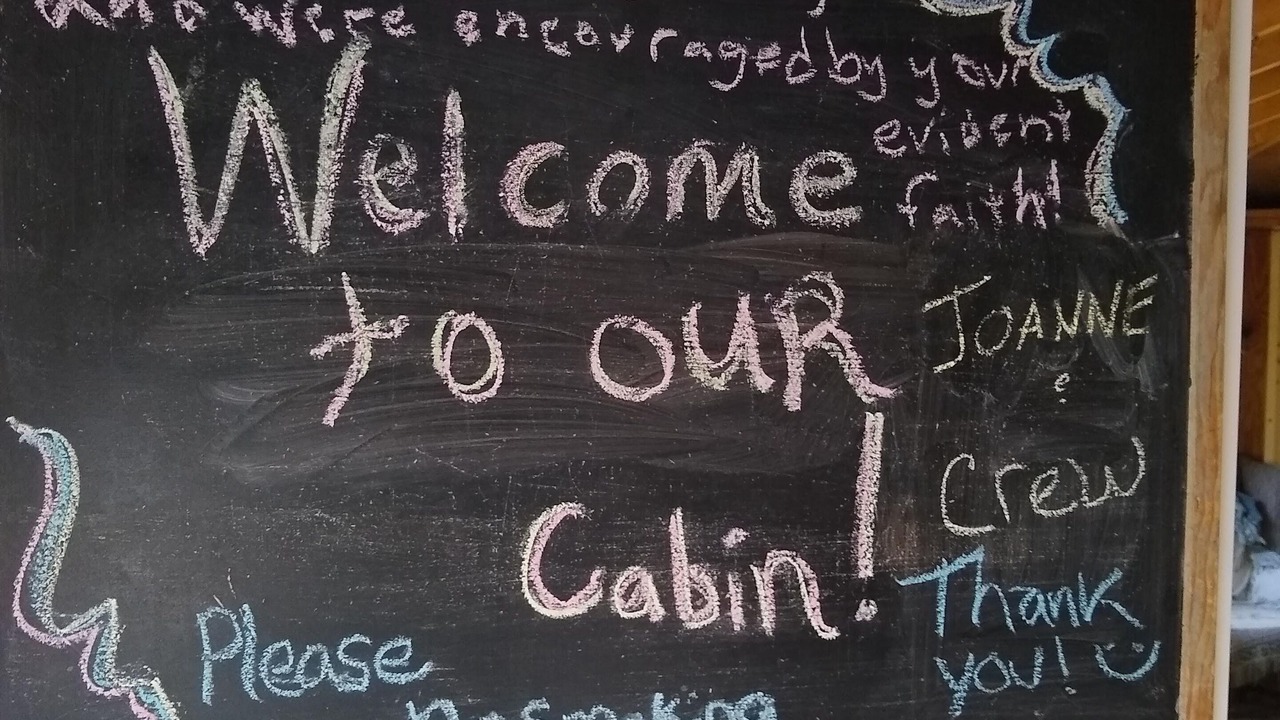 and were encouraged by your
evident
faith!
Welcome
to OUR
Cabin!
JOANNE
&
Crew
Thank
you!
Please
no smoking